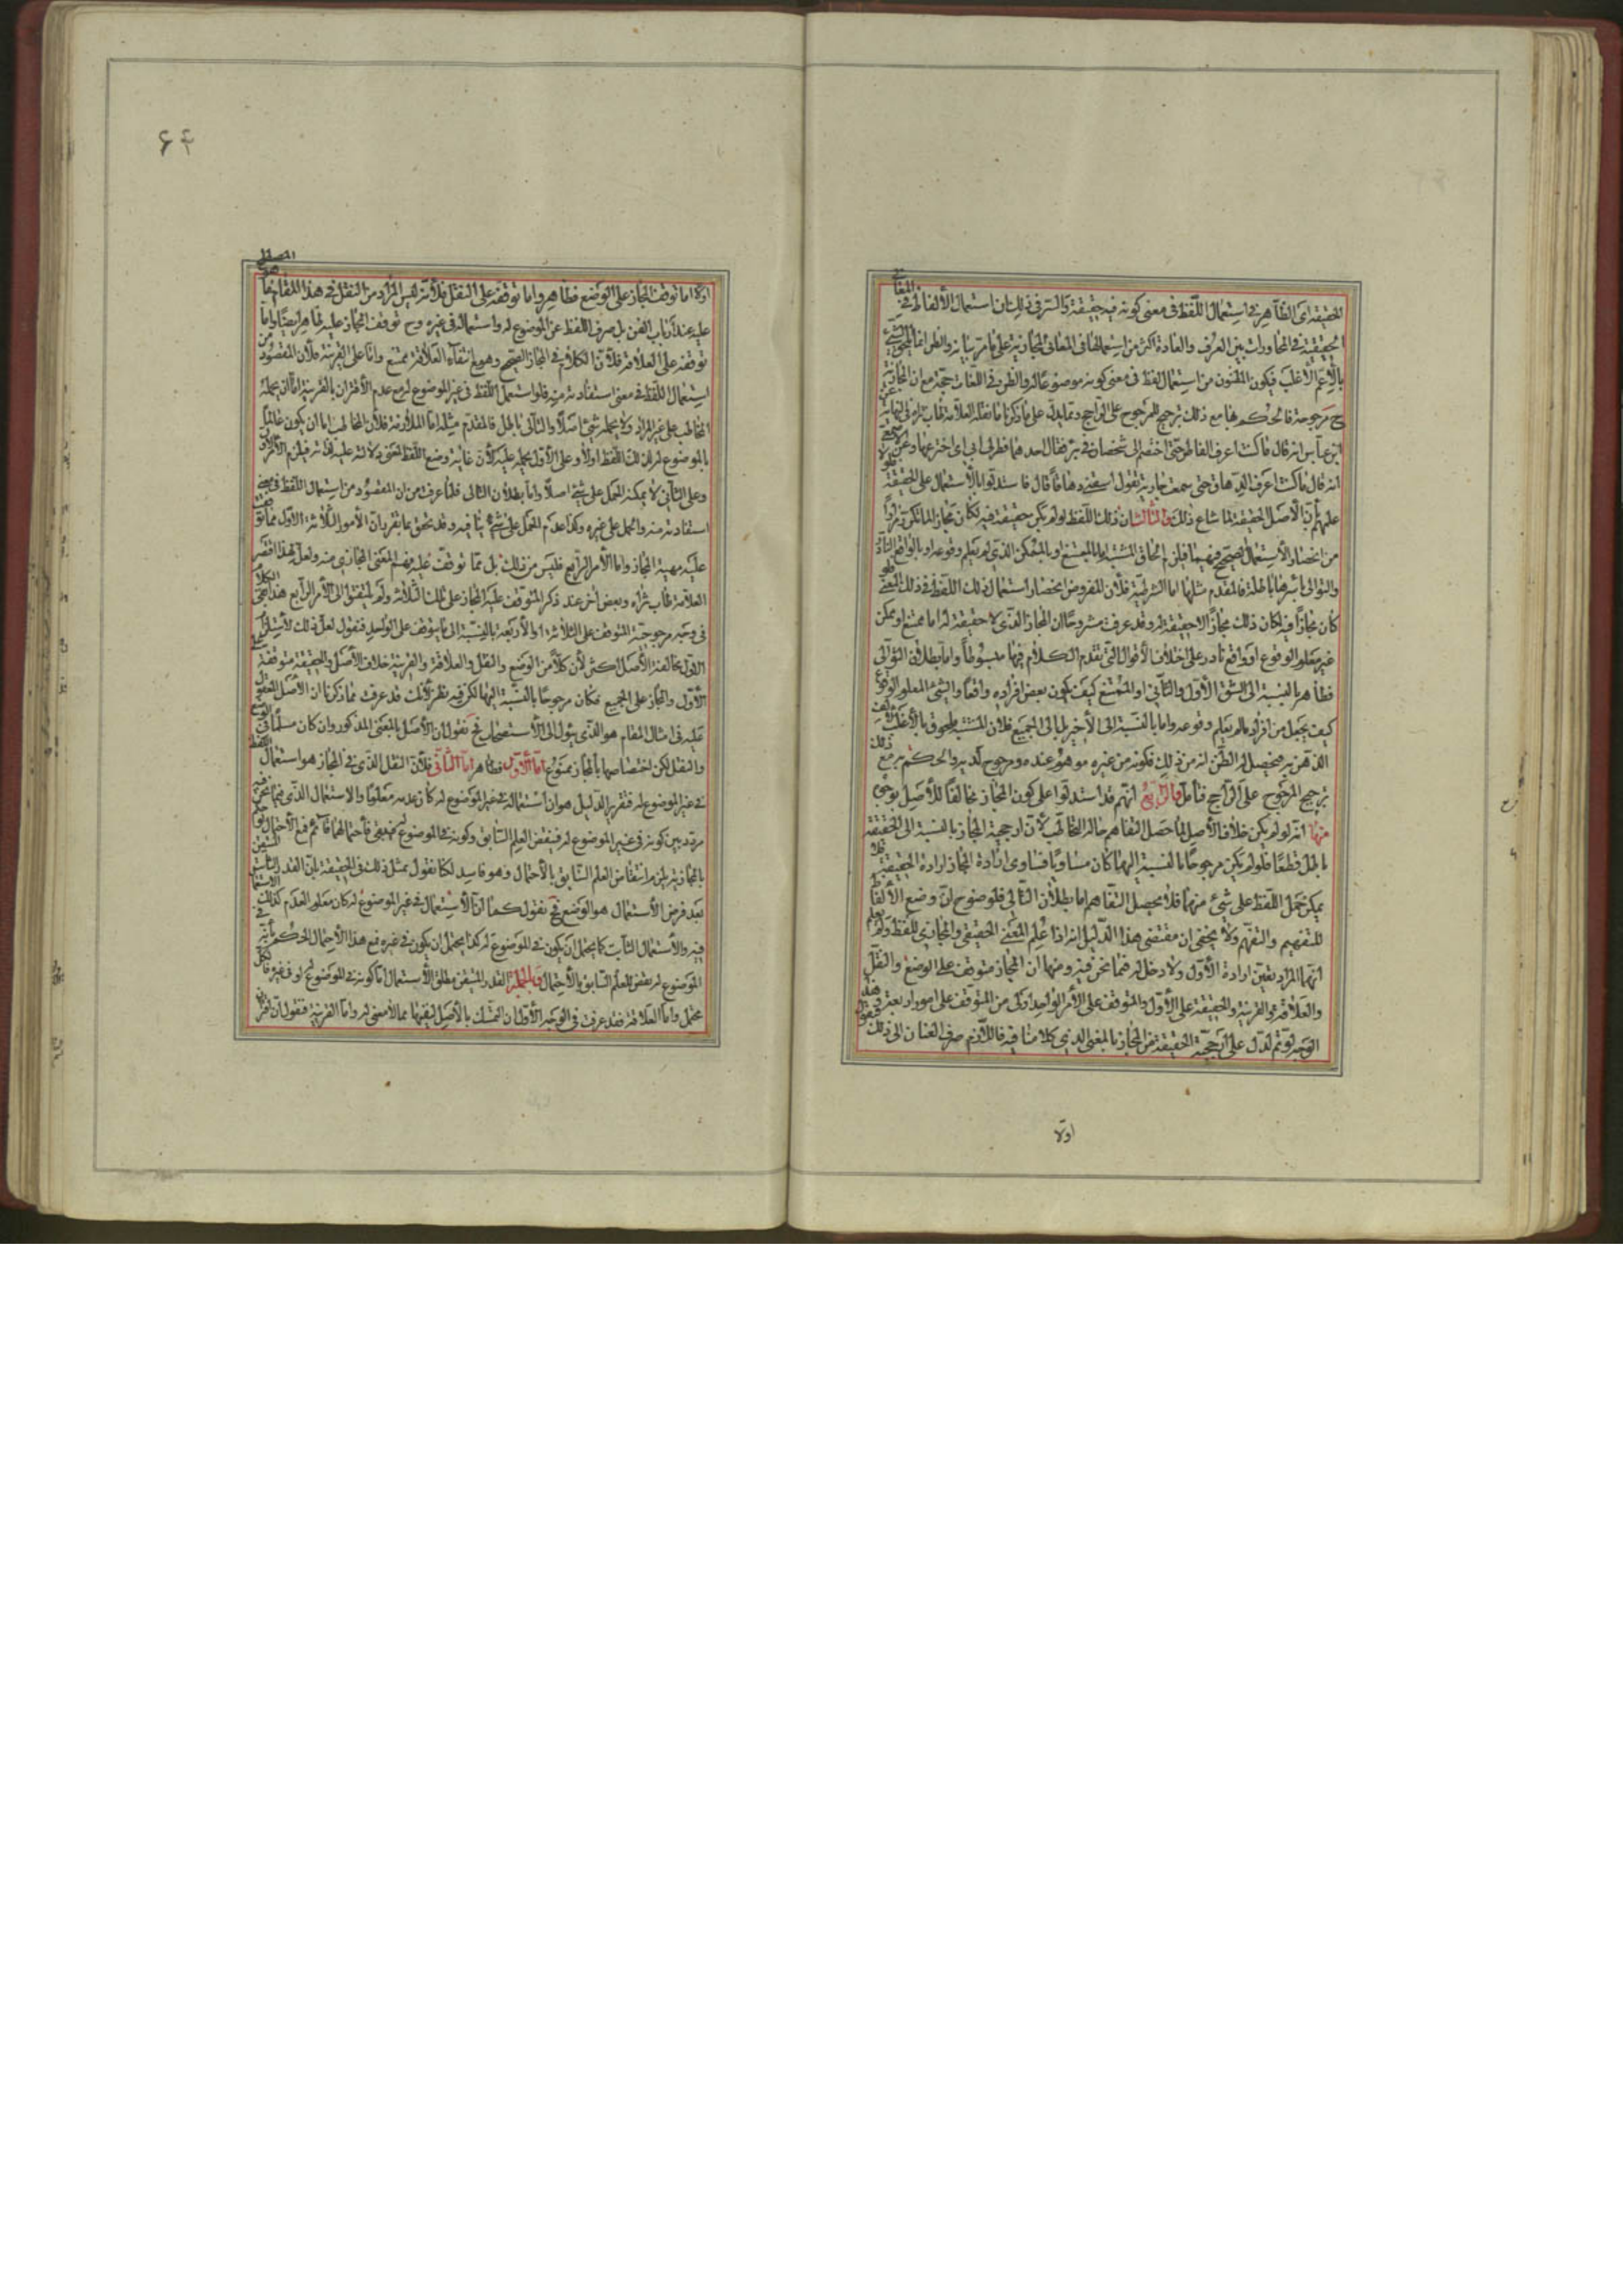 الحقيقة اى الظاهر فى استعمال اللفظ فى معنى كونه فيه حقيقة والسر فى ذلك ان استعمال الألفاظ فى المعانى
الحقيقية فى المحاورات بين العرف والعادة اكثر من استعمالها فى المعانى المجازية على ما مر بيانه والظن انما يلحق الشئ
بالاعم الأغلب فيكون المظنون من استعمال لفظ فى معنى كونه موضوعا له والظن فى اللغات حجة مع ان المجازية
ح مرجوحة فالحكم بها مع ذلك ترجيح للمرجوح على الراجح وقد يدل على ما ذكرنا ما نقله العلامة طاب ثراه فى النهاية عن
ابن عباس انه قال ما كنت اعرف الفاطر حتى اختصم الى شخصان فى بئر فقال احدهما فطرها ابى اى اخترعها وعن الاصمعى
انه قال ما كنت اعرف الدهاق حتى سمعت جارية تقول اسقنى دهاقا قال فاستدلوا بالاستعمال على الحقيقة فلولا
علمهم بأن الأصل الحقيقة لما شاع ذلك والثالث ان ذلك اللفظ لو لم يكن حقيقة فيه لكان مجازا لما
من انحصار الاستعمال الصحيح فيهما فيلزم الحاق المشتبه اما بالممتنع او بالممكن الذى لم يعلم وقوعه او بالواقع النادر
والتوالى بأسرها باطلة فالمقدم مثلها اما الشرطية فلأن المفروض انحصار استعمال ذلك اللفظ فى ذلك المعنى فلو
كان مجازا فيه لكان ذلك مجازا لا حقيقة له وقد عرفت مشروحا ان المجاز الذى لا حقيقة له اما ممتنع او ممكن
غير معلوم الوقوع او واقع نادر على اختلاف الأقوال التى تقدم الكلام فيها مبسوطا واما بطلان التوالى
فظاهر بالنسبة الى الشق الأول والثانى اذ الممتنع كيف يكون بعض افراده واقعا والشئ المعلوم الوقوع
كيف يجعل من افراد ما لم يعلم وقوعه واما بالنسبة الى الأخير بل الى الجميع فلان المشتبه ملحوق بالأغلب
الذهن به فيحصل له الظن انه من ذلك فكونه من غيره موهوم عنده ومرجوح لديه والحكم به مع ذلك
ترجيح المرجوح على الراجح فتأمل والرابع انهم قد استدلوا على كون المجاز مخالفا للأصل بوجوه
منها انه لو لم يكن خلاف الأصل لما حصل التفاهم حالة التخاطب لأن ارجحية المجاز بالنسبة الى الحقيقة
باطل قطعا فلو لم يكن مرجوحا بالنسبة اليها كان مساويا فتساوى ارادة المجاز ارادة الحقيقة فلا
يمكن حمل اللفظ على شئ منهما فلا يحصل التفاهم اما بطلان التالى فلوضوح ان وضع الألفاظ
للتفهيم والتفهم ولا يخفى ان مقتضى هذا الدليل انه اذا علم المعنى الحقيقى والمجازى للفظ ولم يعلم
ايهما المراد يتعين ارادة الأول ولا دخل له فيما نحن فيه ومنها ان المجاز متوقف على الوضع والنقل
والعلاقة والقرينة والحقيقة على الأول والمتوقف على الأمر الواحد اولى من المتوقف على امور اربعة وهذا
الوجه لو تم لدل على ارجحية الحقيقة من المجاز بالمعنى الذى كلامنا فيه فاللازم صرف العنان الى ذلك فنقول
اولا
۶۴
اولا اما توقف المجاز على الوضع فظاهر واما توقفه على النقل فلأنه ليس المراد من النقل فى هذا المقام ما هو المصطلح
عليه عند ارباب الفن بل صرف اللفظ عن الموضوع له واستعماله فى غيره وح توقف المجاز عليه ظاهر ايضا واما
توقفه على العلاقة فلأن الكلام فى المجاز الصحيح وهو مع انتفاء العلاقة ممتنع واما على القرينة فلأن المقصود من
استعمال اللفظ فى معنى استفادته منه فلو استعمل اللفظ فى غير الموضوع له مع عدم الأقتران بالقرينة اما ان يحمله
المخاطب على غير المراد ولا يحمله بشئ اصلا والتالى باطل فالمقدم مثله اما الملازمة فلأن المخاطب اما ان يكون عالما
بالموضوع له لذلك اللفظ اولا وعلى الأول يحمله عليه لأن غاية وضع اللفظ لمعنى دلالته عليه لذاته فيلزم الأمر الأول
وعلى الثانى لا يمكنه الحمل على شئ اصلا واما بطلان التالى فلما عرفت من ان المقصود من استعمال اللفظ فى معنى
استفادته منه والحمل على غيره وكذا عدم الحمل على شئ ينافيه وقد تحقق بما تقرر ان الأمور الثلاثة الأول مما توقفت
عليه مهية المجاز واما الأمر الرابع فليس من ذلك بل مما توقفت عليه فهم المعنى المجازى منه ولعل لهذا اقتصر
العلامة طاب ثراه وبعض اخر عند ذكر المتوقف عليه المجاز على تلك الثلثة ولم يلتفتوا الى الأمر الرابع هذا بقى الكلام
فى وجه مرجوحية المتوقف على الثلاثة او الأربعة بالنسبة الى ما يتوقف على الواحد فنقول لعل ذلك
الأول مخالفة الأصل اكثر لأن كلا من الوضع والنقل والعلاقة والقرينة خلاف الأصل والحقيقة متوقفة على
الأول والمجاز على الجميع فكان مرجوحا بالنسبة اليها لكن فيه نظر لأنك قد عرفت مما ذكرنا ان الأصل المعول
عليه فى امثال المقام هو الذى يؤول الى الأستصحاب فح نقول ان الأصل بالمعنى المذكور وان كان مسلما فى الوضع
والنقل لكن اختصاصهما بالمجاز ممنوع اما الأول فظاهر اما الثانى فلأن النقل الذى فى المجاز هو استعمال اللفظ
فى غير الموضوع له فتقرير الدليل هو ان استعماله فى غير الموضوع له كان عدمه معلوما والاستعمال الذى فيما نحن فيه
مردد بين كونه فى غير الموضوع له فينقض العلم السابق وكونه فى الموضوع له فيبقى فأحتمالهما قائم فمع الأحتمال لو حكم
بالمجازية يلزم انتقاض العلم السابق بالأحتمال وهو فاسد لكنا نقول بمثل ذلك فى الحقيقة لأن القدر الثابت المتيقن
بعد فرض الأستعمال هو الوضع فح نقول كما ان الأستعمال فى غير الموضوع له كان معلوم العدم كذلك الأستعمال فى
فيه والأستعمال الثابت كما يحتمل ان يكون فى الموضوع له كذا يحتمل ان يكون فى غيره فمع هذا الأحتمال الحكم بأنه فى
الموضوع له نقض للعلم السابق بالأحتمال وبالجملة القدر المتيقن مطلق الأستعمال اما كونه فى الموضوع له او فى غيره فكل
محتمل واما العلاقة فقد عرفت فى الوجه الأول ان التمسك بالأصل لنفيها مما لا معنى له واما القرينة فنقول ان